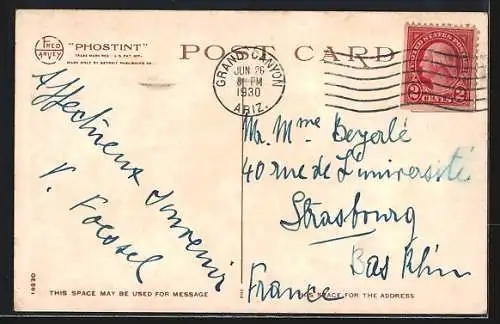 FRED
HARVEY
"PHOSTINT"
TRADE MARK REG. U.S. PAT. OFF.
MADE ONLY BY DETROIT PUBLISHING CO.
POST CARD
GRAND CANYON
JUN 26
PM
1930
ARIZ.
UNITED STATES POSTAGE
2 CENTS 2
Affectueux Souvenir
Mr. Mme Beyerlé
40 rue de L'université
Strasbourg
Bas Rhin
France
THIS SPACE MAY BE USED FOR MESSAGE
THIS SPACE FOR THE ADDRESS